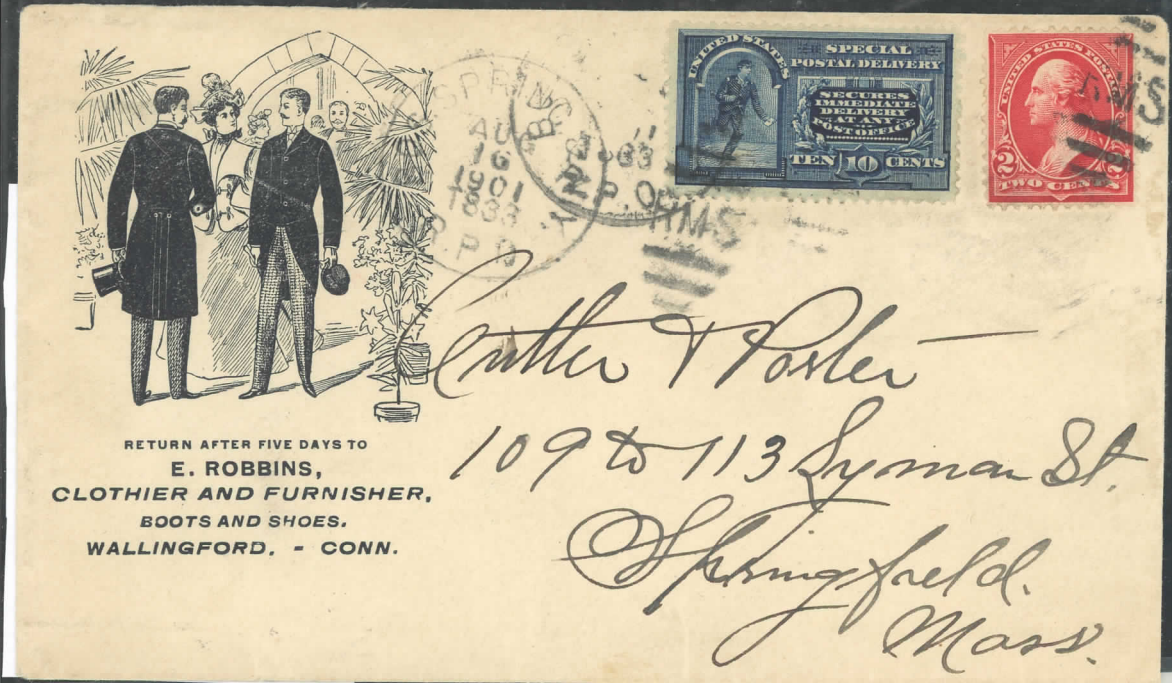 UNITED STATES
SPECIAL
POSTAL DELIVERY
SECURES
IMMEDIATE
DELIVERY
AT ANY
POST OFFICE
TEN 10 CENTS
UNITED STATES POSTAGE
2 2
TWO CENTS
RMS
RMS
SPRING
AU
16
1901
1833
R.P.O.
R.P.O.
RETURN AFTER FIVE DAYS TO
E. ROBBINS,
CLOTHIER AND FURNISHER,
BOOTS AND SHOES.
WALLINGFORD, - CONN.
Cutler & Porter
109 to 113 Lyman St.
Springfield.
Mass.